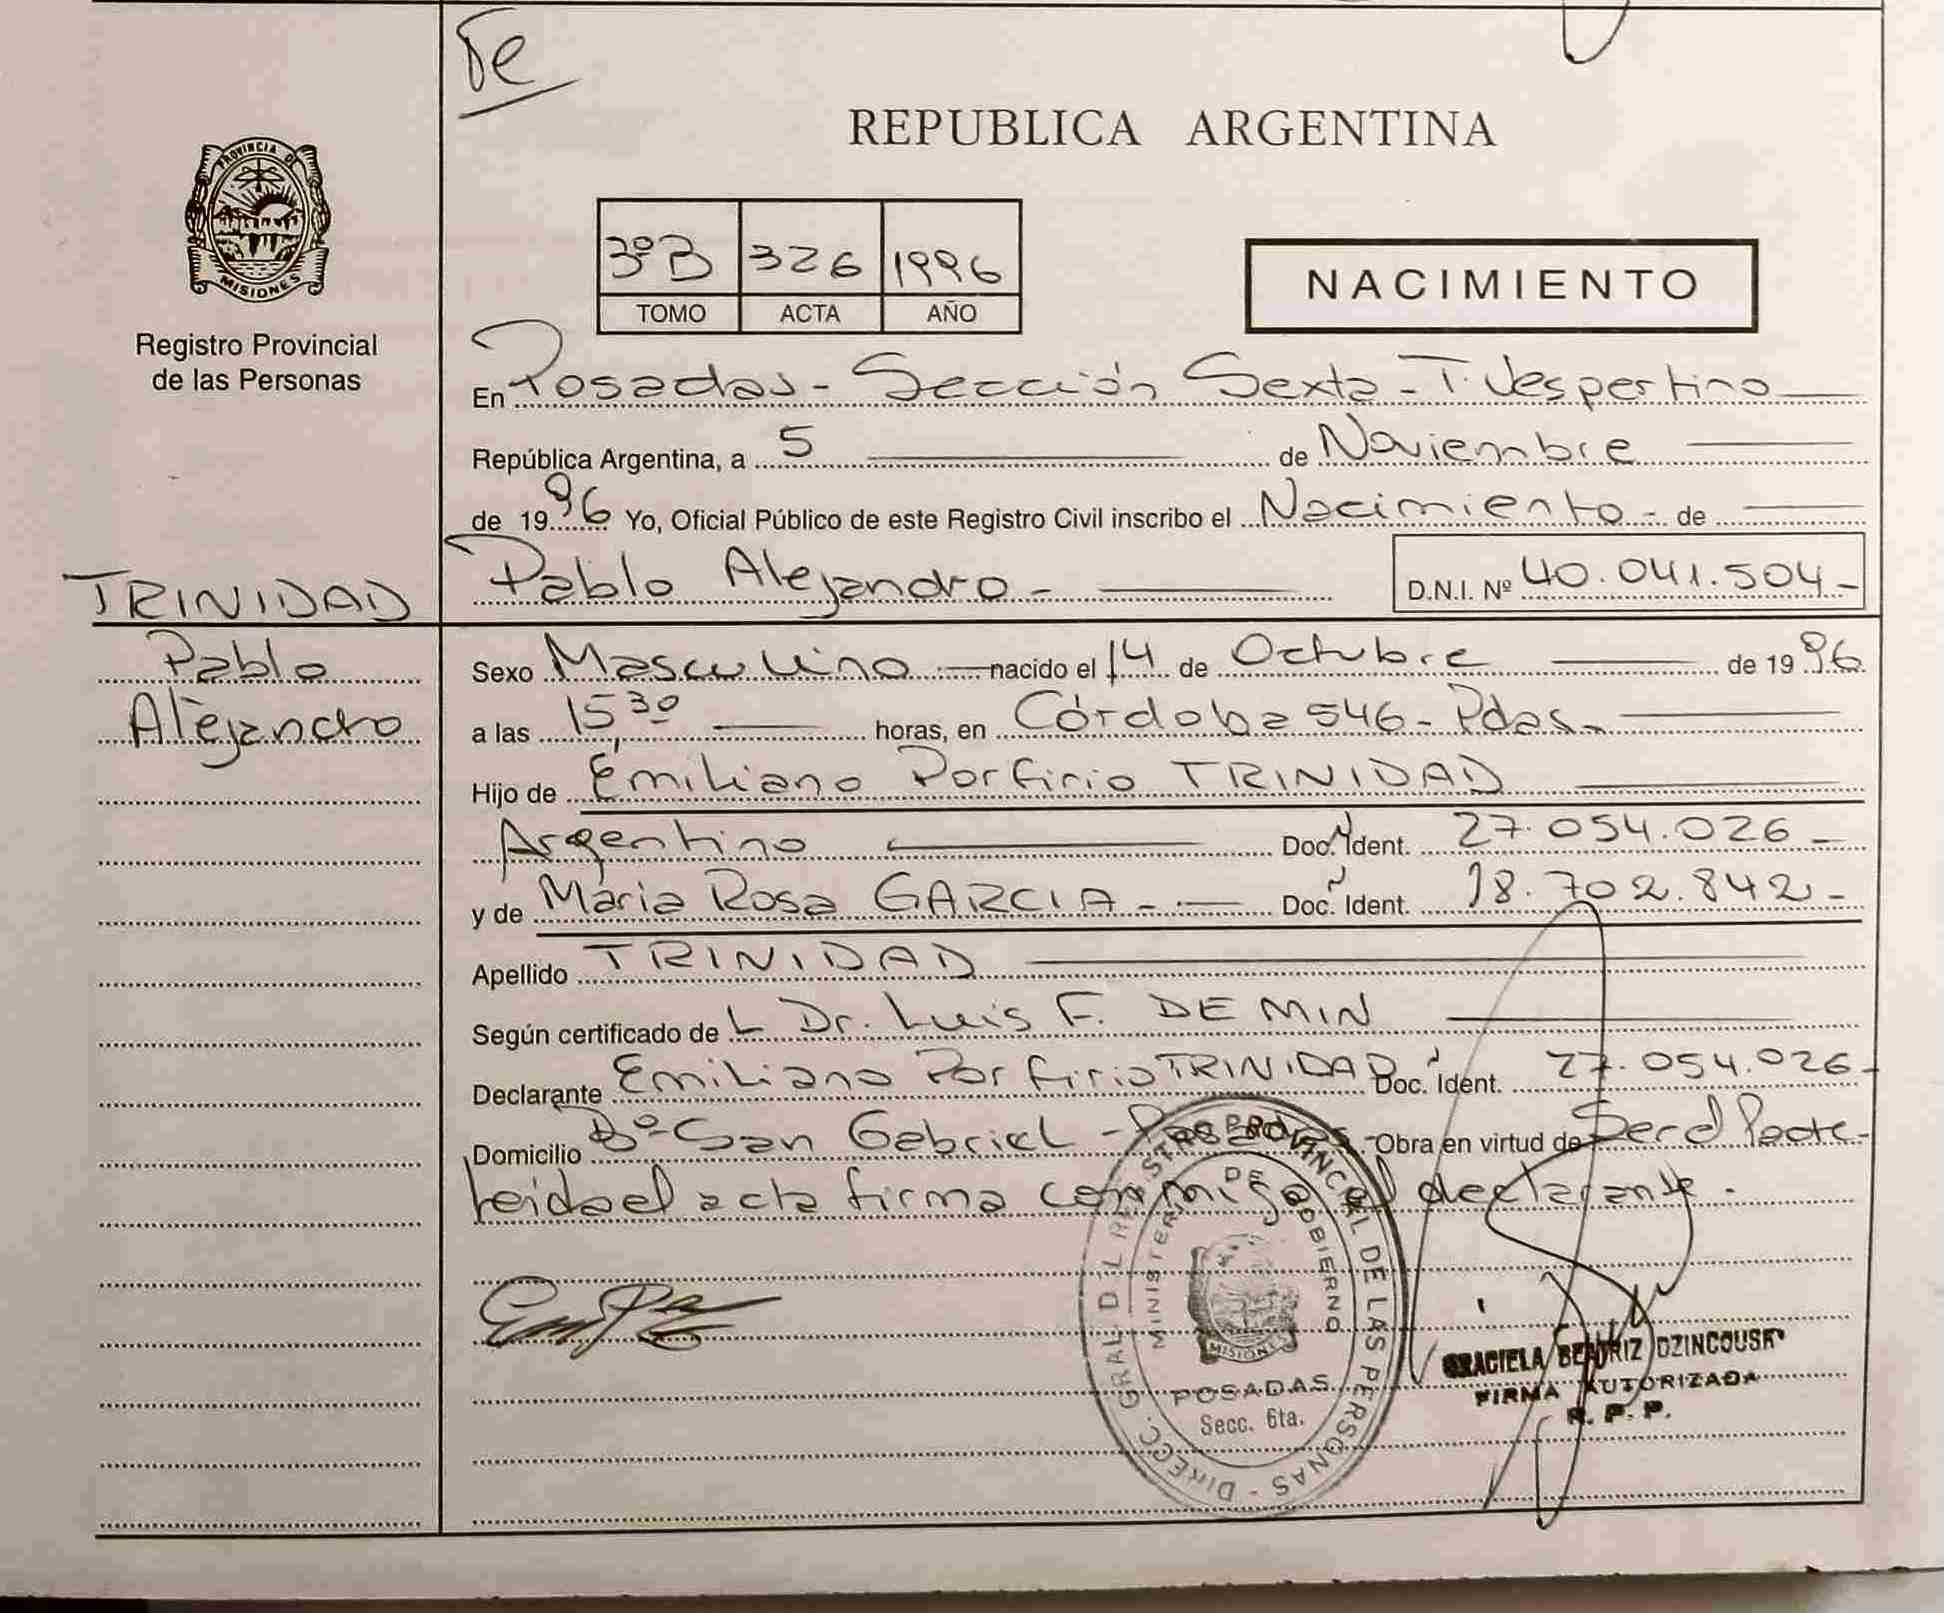 Te
REPUBLICA ARGENTINA
PROVINCIA DE
MISIONES
Registro Provincial
de las Personas
3º B 326 1996
TOMO ACTA AÑO
NACIMIENTO
En Posadas - Sección Sexta - T. Vespertino
República Argentina, a 5 de Noviembre
de 1996 Yo, Oficial Público de este Registro Civil inscribo el Nacimiento - de
Pablo Alejandro - D.N.I. Nº 40.041.504 -
TRINIDAD
Pablo
Alejandro
Sexo Masculino nacido el 14 de Octubre de 1996
a las 15,30 horas, en Córdoba 546 - Pdas -
Hijo de Emiliano Porfirio TRINIDAD
Argentino Doc. Ident. 27.054.026 -
y de Maria Rosa GARCIA - Doc. Ident. 18.702.842 -
Apellido TRINIDAD
Según certificado de L Dr. Luis F. DE MIN
Declarante Emiliano Porfirio TRINIDAD Doc. Ident. 27.054.026 -
Domicilio Bº San Gabriel - Posadas - Obra en virtud de Ser el Padre -
Leida el acta firma conmigo el declarante -
DIRECC. GRAL. DEL REGISTRO PROVINCIAL DE LAS PERSONAS -
MINISTERIO DE GOBIERNO
MISIONES
POSADAS
Secc. 6ta.
GRACIELA BEATRIZ DZINCOUSR
FIRMA AUTORIZADA
R. P. P.